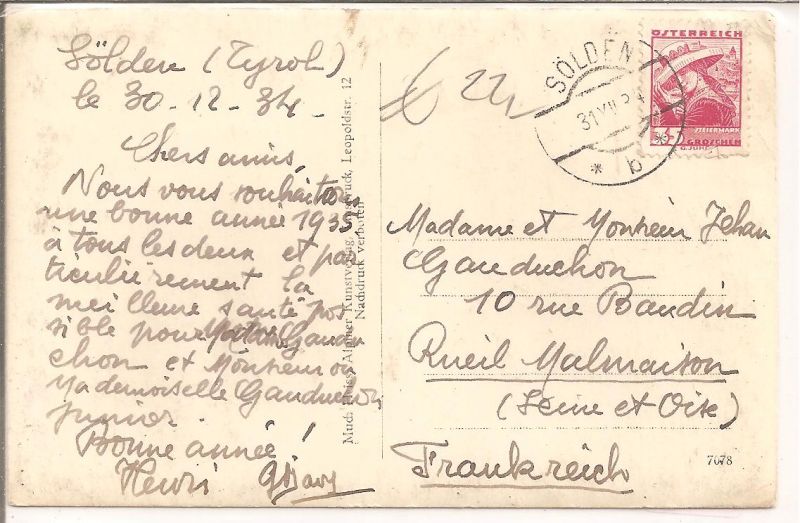 Sölden (Tyrol)
le 30-12-34.
Chers amis,
Nous vous souhaitons
une bonne année 1935
à tous les deux et par
ticulièrement la
meilleure santé pos
sible pour Madame Gaudu
chon et Monsieur ou
Mademoiselle Gauduchon
junior.
Bonne année!
Henri
Mud: Alpiner Kunstverlag, Innsbruck, Leopoldstr. 12
Nachdruck verboten
ÖSTERREICH
STEIERMARK
GROSCHEN
SÖLDEN
31 XII 34
* b *
Madame et Monsieur Jehan
Gauduchon
10 rue Baudin
Rueil Malmaison
(Seine et Oise)
Frankreich
7678